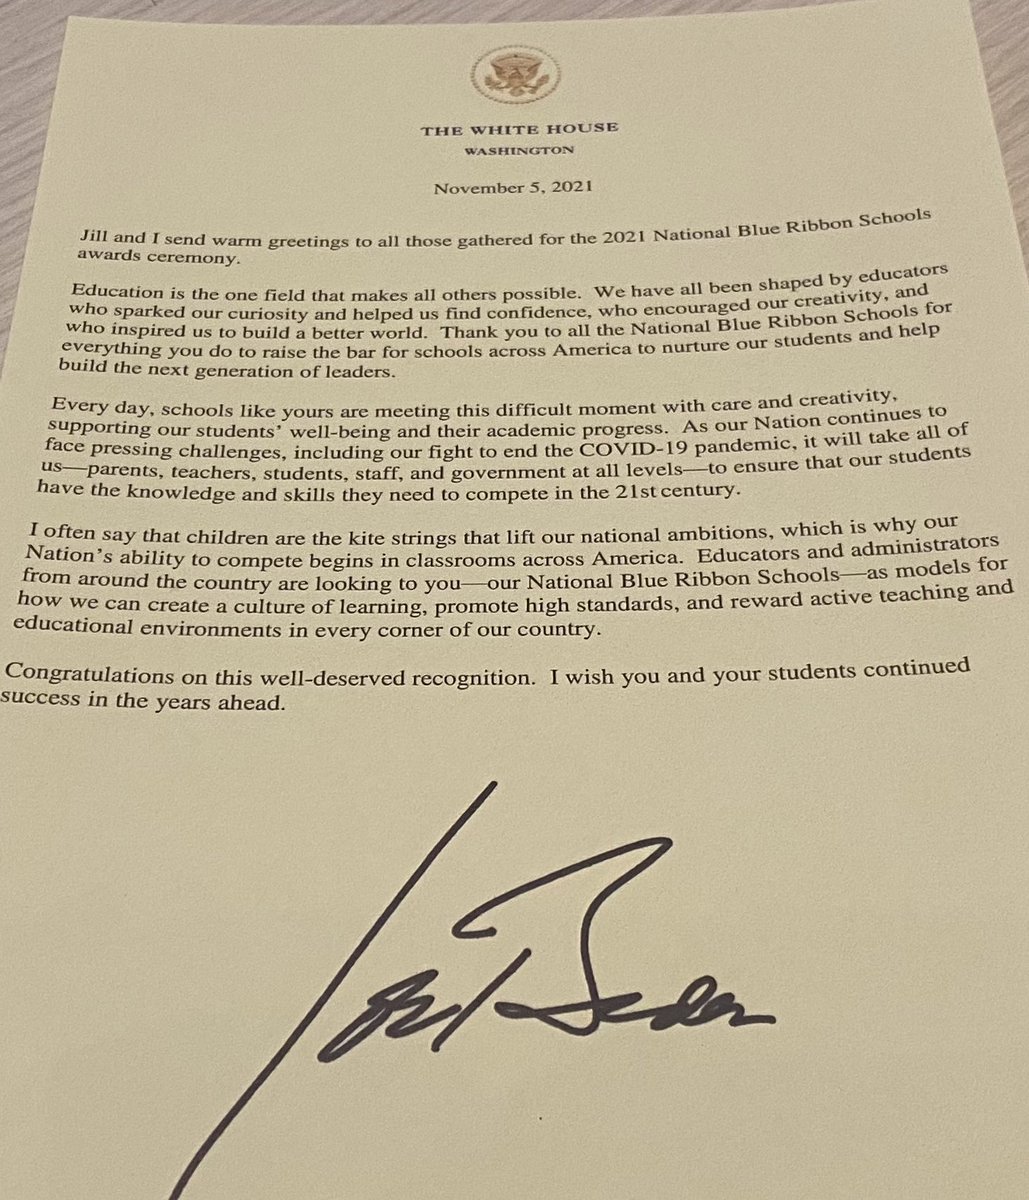 THE WHITE HOUSE
WASHINGTON
November 5, 2021
Jill and I send warm greetings to all those gathered for the 2021 National Blue Ribbon Schools
awards ceremony.
Education is the one field that makes all others possible. We have all been shaped by educators
who sparked our curiosity and helped us find confidence, who encouraged our creativity, and
who inspired us to build a better world. Thank you to all the National Blue Ribbon Schools for
everything you do to raise the bar for schools across America to nurture our students and help
build the next generation of leaders.
Every day, schools like yours are meeting this difficult moment with care and creativity,
supporting our students' well-being and their academic progress. As our Nation continues to
face pressing challenges, including our fight to end the COVID-19 pandemic, it will take all of
us—parents, teachers, students, staff, and government at all levels—to ensure that our students
have the knowledge and skills they need to compete in the 21st century.
I often say that children are the kite strings that lift our national ambitions, which is why our
Nation's ability to compete begins in classrooms across America. Educators and administrators
from around the country are looking to you—our National Blue Ribbon Schools—as models for
how we can create a culture of learning, promote high standards, and reward active teaching and
educational environments in every corner of our country.
Congratulations on this well-deserved recognition. I wish you and your students continued
success in the years ahead.